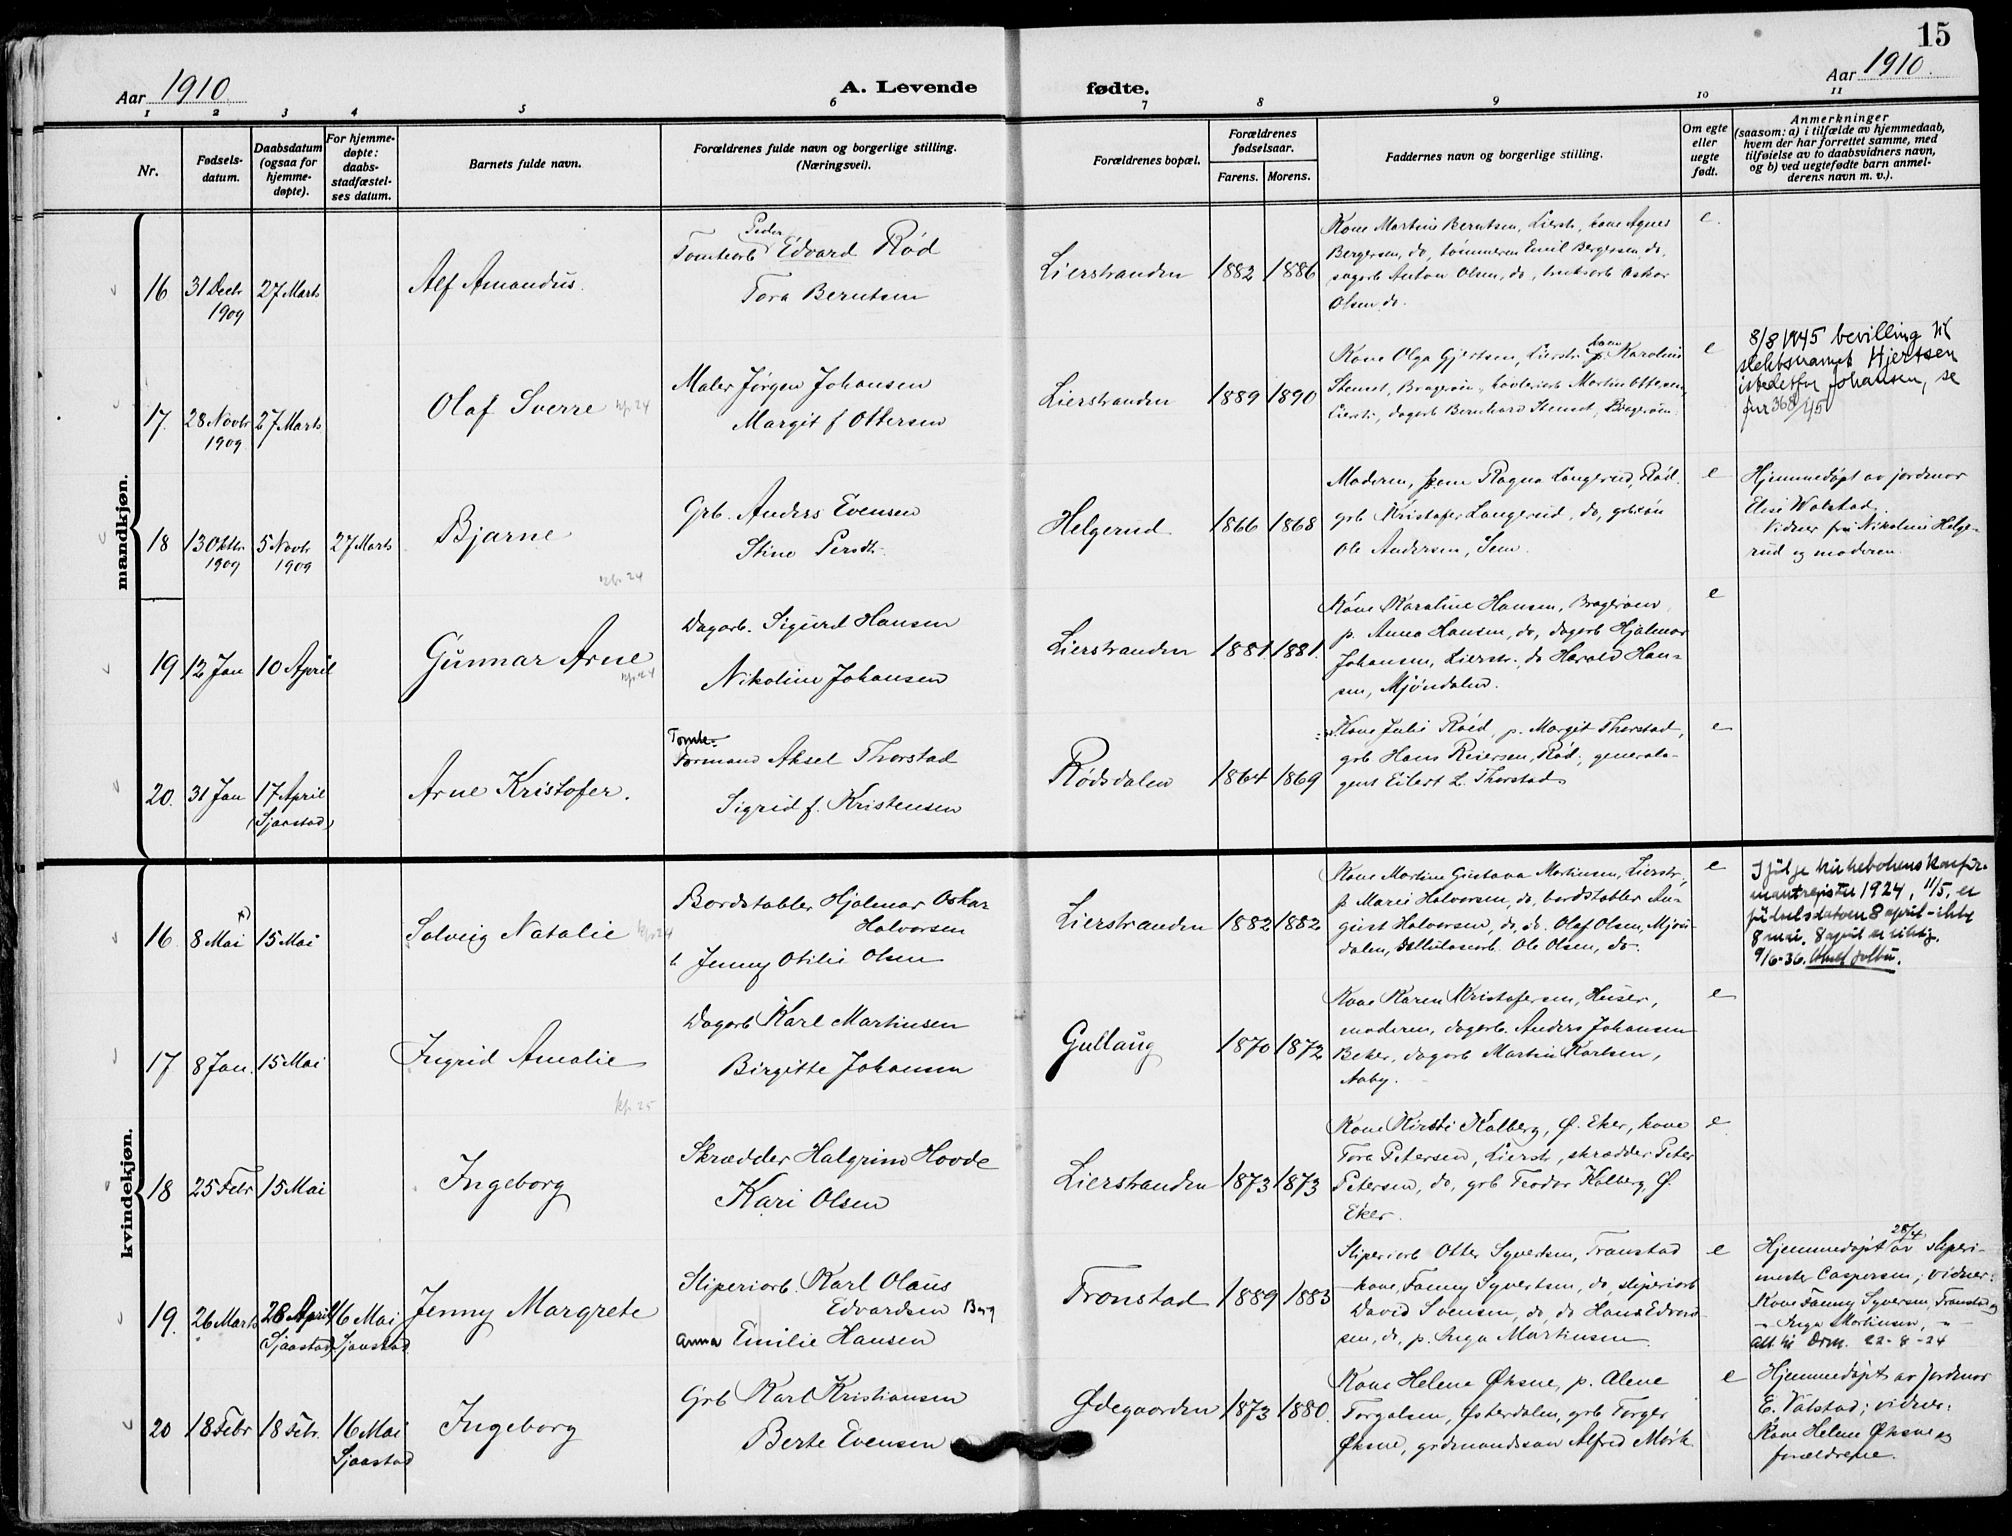 15
Aar 1910
A. Levende fødte.
Aar 1910.
1 2 3 4 5 6 7 8 9 10 11
Nr.
Fødsels-
datum.
Daabsdatum
(ogsaa for
hjemme-
døpte).
For hjemme-
døpte:
daabs-
stadfæstel-
ses datum.
Barnets fulde navn.
Forældrenes fulde navn og borgerlige stilling.
(Næringsvei).
Forældrenes bopæl.
Forældrenes
fødselsaar.
Farens. Morens.
Faddernes navn og borgerlige stilling.
Om egte
eller
uegte
født.
Anmerkninger
(saasom: a) i tilfælde av hjemmedaab,
hvem der har forrettet samme, med
tilføielse av to daabsvidners navn,
og b) ved uegtefødte barn anmel-
derens navn m. v.).
mandkjøn.
16 31 Decbr 1909 27 Marts
Alf Amandus.
Tomtearb Peder Edvard Rød
Tora Berntsen
Lierstranden 1882 1886
Kone Martine Berntsen, Lierstr, kone Agnes
Bergersen, do, tømmerm Emil Bergersen, do,
sagarb Anton Olsen, do, bruksarb Oskar
Olsen, do.
e.
17. 28 Novbr 1909. 27 Marts
Olaf Sverre
kfr 24
Maler Jørgen Johansen
Margit f Ottersen
Lierstranden 1889 1890
Kone Olga Gjertsen, Lierstr, p. Karoline
Stenset, Bragerøen, Martin Ottersen,
Lierstr, dagarb Bernhard Stenset, Bragerøen.
e
8/8 1945 bevilling til
slektsnavnet Hjertsen
istedetfor Johansen, se
jnr 368/45
18 13 Oktbr 1909 5 Novbr 1909 27 Marts
Bjarne
kfr. 24
Grb. Anders Evensen
Stine Persdtr.
Helgerud 1866 1868
Moderen, piken Ragna Langerud, Rød.
grb Kristofer Langerud, do, grbsøn
Ole Andersen, Sem.
e
Hjemmedøpt av jordmor
Elise Walstad.
Vidner fru Nikoline Helge-
rud og moderen.
19 12 Jan 10 April
Gunnar Arne
kfr. 24
Dagarb. Sigurd Hansen
Nikoline Johansen
Lierstranden 1881 1881.
Kone Karoline Hansen, Bragerøen,
p. Anna Hansen, do, dagarb Hjalmar
Johansen, Lierstr., do Harald Han-
sen, Mjøndalen.
e
20. 31 Jan 17 April
(Sjaastad)
Arne Kristofer.
Tomte-
Formand Aksel Thorstad
Sigrid f. Kristensen
Rødsdalen 1864 1869
Kone Julie Roed, p. Margit Thorstad,
grb Hans Reiersen, Rød, generala-
gent Eilert L. Thorstad
e
kvindekjøn.
16. 8 Mai 15 Mai
Solveig Natalie
kfr 24
Bordstabler Hjalmar Oskar
Halvorsen
Jenny Otilie Olsen
Lierstranden 1882 1882
Kone Martine Gustava Martinsen, Lierstr,
p Marie Halvorsen, do, bordstabler Au-
gust Halvorsen, do, do. Olaf Olsen, Mjøn-
dalen, cellulosearb. Ole Olsen, do.
e
Ifølge kirkebokens konfir-
mantregister 1924, 11/5, er
fødselsdatoen 8 april - ikke
8 mai. 8 april er riktig.
9/6-36.
17 8 Jan. 15 Mai
Ingrid Amalie
kfr. 25
Dagarb Karl Martinsen
Birgitte Johansen
Gullaug 1870 1872
Kone Karen Kristofersen, Huser,
moderen, dagarb. Anders Johansen
Beker, dagarb Martin Karlsen,
Aaby.
e
18 25 Febr 15 Mai
Ingeborg
Skrædder Halgrim Hovde
Kari Olsen
Lierstranden 1873 1873
Kone Kirsti Kolberg, Ø. Eker, kone
Tora Petersen, Lierstr, skrædder Peter
Petersen, do, grb Teodor Kolberg, Ø.
Eker.
e
19. 26 Marts 28 April Sjaastad 16 Mai Sjaastad
Jenny Margrete
Sliperiarb. Karl Olaus
Edvardsen Berg
Anna Emilie Hansen
Tronstad 1889 1883
Sliperiarb Otter Syvertsen, Tronstad
kone Fanny Syvertsen, do, sliperiarb
David Svensen, do, do Hans Edvard-
sen, do, p. Inga Martinsen.
e
Hjemmedøpt 28/4 av sliperi-
mester Caspersen; vidner:
Kone Fanny Syversen, Tronstad og
- Inga Martinsen, -
Att. til Drm. 22-8-24
20 18 Febr 18 Febr. 16 Mai Sjaastad
Ingeborg
Grb Karl Kristiansen
Berte Evensen
Ødegaarden 1873 1880.
Kone Helene Øksne, p. Alene
Torgalsen, Østerdalen, grb Torger
Øksne, grdmandssøn Alfred Mørk.
e
Hjemmedøpt av jordmor
E. Valstad; vidner:
Kone Helene Øksne og
forældrene.